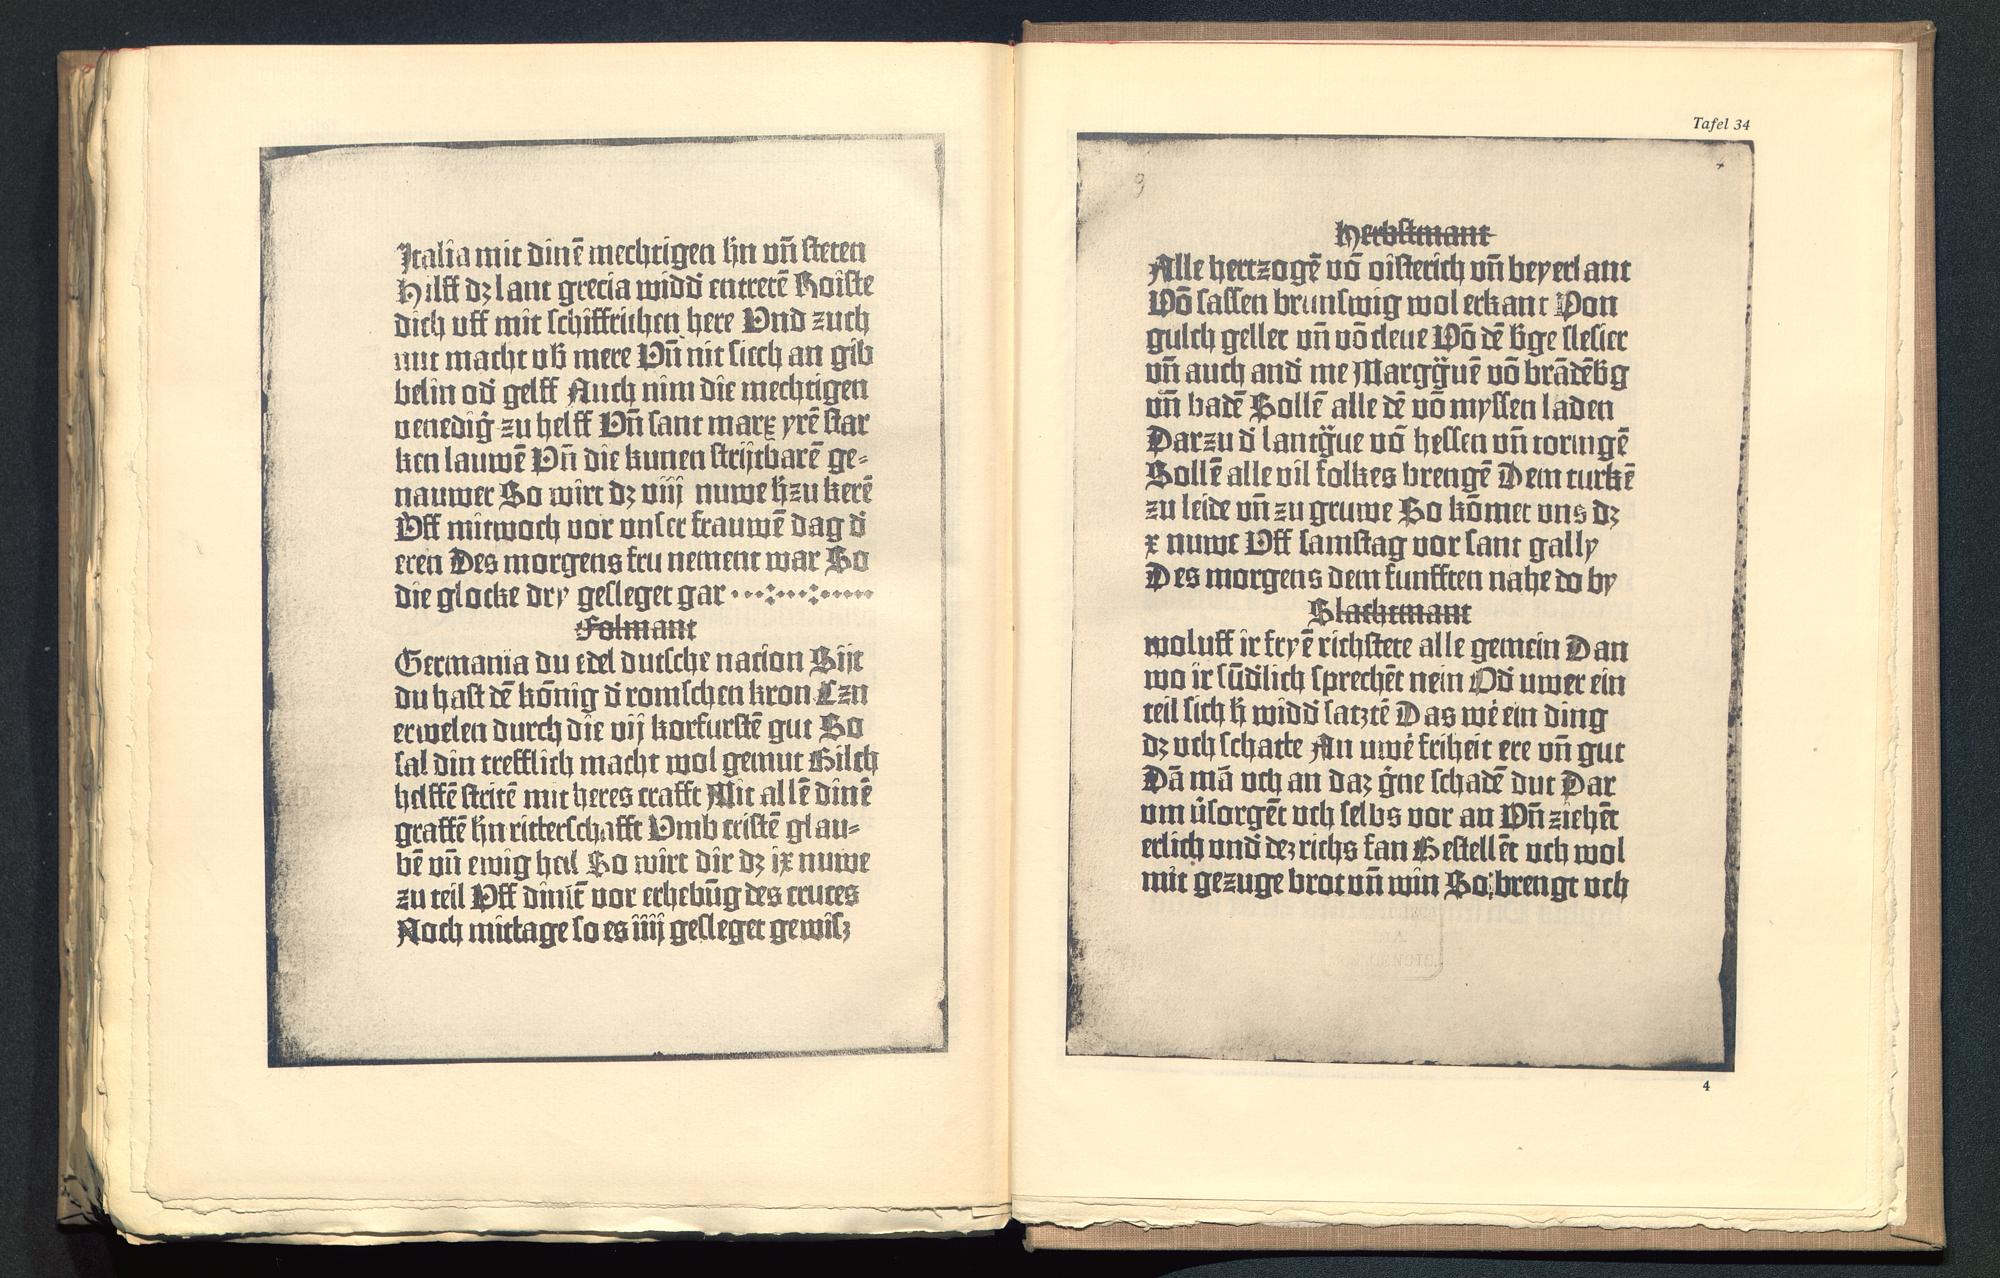 Italia mit dinē mechtigen hn̄ vn̄ steten
Hilff dz lant grecia widd' entretē Roiste
dich uff mit schiffrichen here Vnd zuch
mit macht ub' mere Vn̄ nit siech an gib
belin od' gelff Auch nim die mechtigen
venedig' zu helff Vn̄ sant marx yrē star
ken lauwē Vn̄ die kunen strijtbarē ge⸗
nauwer So wirt dz viij nuwe h'zu kerē
Vff mitwoch vor vnser frauwē dag d'
eren Des morgens fru nement war So
die glocke dry gesleget gar ···:···:·····
Folmant
Germania du edel dutsche nacion Sijt
du hast dē kōnig d' romschen kron Czu
erwelen durch die vij korfurstē gut So
sal din trefflich macht wol gemut Gilch
helffē stritē mit heres crafft Mit allē dinē
graffē hn̄ ritterschafft Vmb cristē glau⸗
bē vn̄ ewig heil So wirt dir dz ix nuwe
zu teil Vff dinst' vor erhebūg des cruces
Noch mittage so es iiij gesleget gewisz
Tafel 34
9
Herbstmant
Alle hertzogē vō oisterich vn̄ beyerlant
Vō sassen brunswig wol erkant Von
gulch geller vn̄ vō cleue Vō dē b'ge slesier
vn̄ auch and' me Marggūē vō brādēb'g
vn̄ badē Sollē alle dē vō myssen laden
Darzu d' lantg'ue vō hessen vn̄ toringē
Sollē alle vil folkes brengē Dem turkē
zu leide vn̄ zu gruwe So kōmet vns dz
x nuwe Vff samstag vor sant gally
Des morgens dem funfften nahe do by
Slachtmant
woluff ir fryē richstete alle gemein Dan
wo ir sūd'lich sprechēt nein Od' uwer ein
teil sich h' widd' satztē Das we' ein ding
dz uch schatte An uwe' friheit ere vn̄ gut
Dā mā uch an daz g'ne schadē dut Dar
vm v'sorgēt uch selbs vor an Vn̄ ziehēt
erlich vnd' dez richs fan Gestellēt uch wol
mit gezuge brot vn̄ win So brengt uch
4